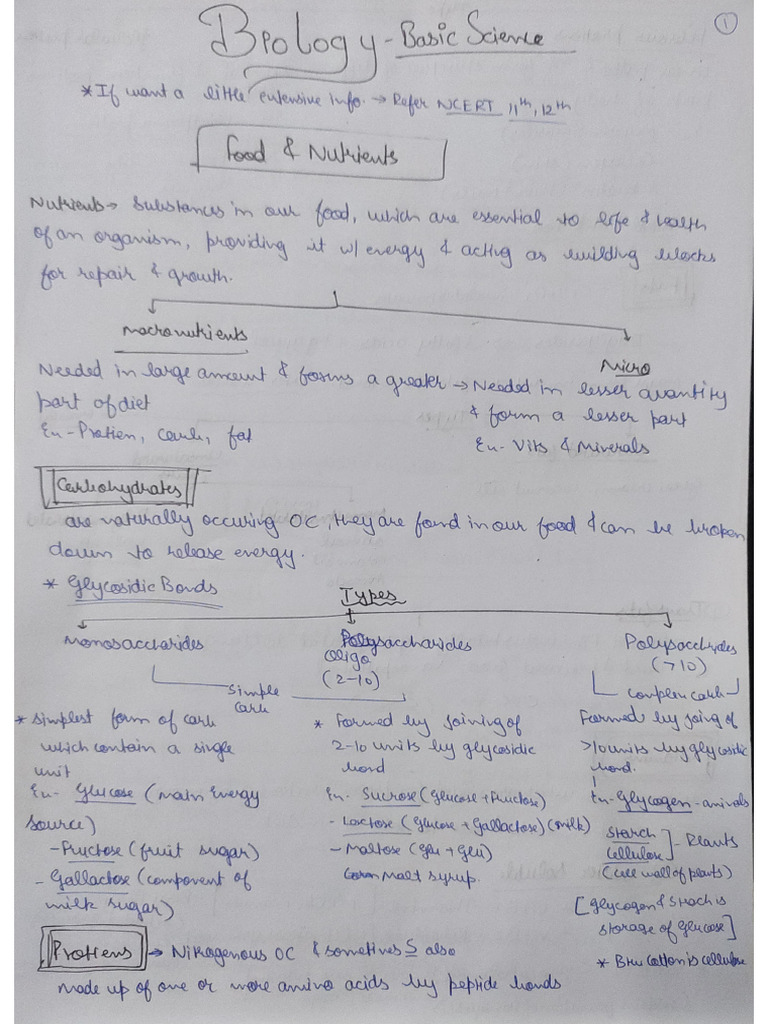 1
Biology - Basic Science
* If want a little extensive info. → Refer NCERT 11th, 12th
Food & Nutrients
Nutrients → Substances in our food, which are essential to life & health
of an organism, providing it w/ energy & acting as building blocks
for repair & growth.
Macronutrients
Micro
Needed in large amount & forms a greater
part of diet
Ex - Protien, carb, fat
→ Needed in lesser quantity
& form a lesser part
Ex - Vits & Minerals
Carbohydrates
are naturally occuring OC, they are found in our food & can be broken
down to release energy.
* Glycosidic Bonds
Types
Monosaccharides
Polysaccharides
oligo
(2-10)
Polysacchrides
(>10)
Simple
carb
complex carb
* Simplest form of carb
which contain a single
unit
Ex - Glucose (main energy
source)
- Fructose (fruit sugar)
- Gallactose (component of
milk sugar)
* Formed by joining of
2-10 units by glycosidic
bond
Ex - Sucrose (Glucose + Fructose)
- Lactose (Glucose + Gallactose) (milk)
- Maltose (Glu + Glu)
Malt syrup.
Formed by joing of
>10 units by glycosidic
bond.
Ex - Glycogen - animals
Starch
Cellulose] - Plants
(cell wall of plants)
[Glycogen & Strach is
storage of glucose]
* Btw Cotton is cellulose
Protiens → Nitrogenous OC & sometimes S also
made up of one or more amino acids by peptide bonds